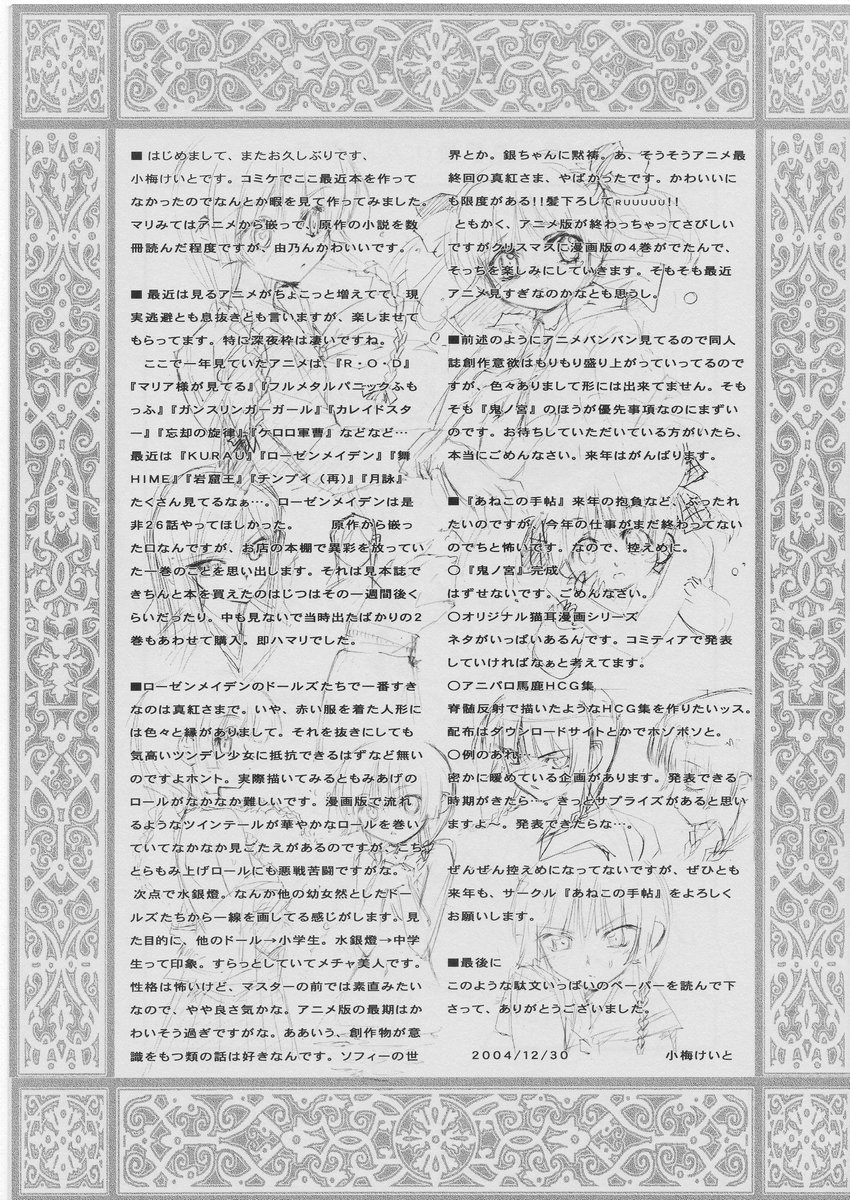 ■ はじめまして、またお久しぶりです、
小梅けいとです。コミケでここ最近本を作って
なかったのでなんとか暇を見て作ってみました。
マリみてはアニメから嵌って、原作の小説を数
冊読んだ程度ですが、由乃んかわいいです。
■ 最近は見るアニメがちょこっと増えてて、現
実逃避とも息抜きとも言いますが、楽しませて
もらってます。特に深夜枠は凄いですね。
ここで一年見ていたアニメは、『R・O・D』
『マリア様が見てる』『フルメタルパニックふも
っふ』『ガンスリンガーガール』『カレイドスタ
ー』『忘却の旋律』『ケロロ軍曹』などなど…
最近は『KURAU』『ローゼンメイデン』『舞
HIME』『岩窟王』『チンプイ（再）』『月詠』
たくさん見てるなぁ…。ローゼンメイデンは是
非26話やってほしかった。　原作から嵌っ
た口なんですが、お店の本棚で異彩を放ってい
た一巻のことを思い出します。それは見本誌で
きちんと本を買えたのはじつはその一週間後く
らいだったり。中も見ないで当時出たばかりの2
巻もあわせて購入。即ハマリでした。
■ローゼンメイデンのドールズたちで一番すき
なのは真紅さまで。いや、赤い服を着た人形に
は色々と縁がありまして。それを抜きにしても
気高いツンデレ少女に抵抗できるはずなど無い
のですよホント。実際描いてみるともみあげの
ロールがなかなか難しいです。漫画版で流れ
るようなツインテールが華やかなロールを巻い
ていてなかなか見ごたえがあるのですが、こち
とらもみ上げロールにも悪戦苦闘ですがな。
次点で水銀燈。なんか他の幼女然としたドー
ルズたちから一線を画してる感じがします。見
た目的に、他のドール→小学生。水銀燈→中学
生って印象。すらっとしていてメチャ美人です。
性格は怖いけど、マスターの前では素直みたい
なので、やや良さ気かな。アニメ版の最期はか
わいそう過ぎですがな。ああいう、創作物が意
識をもつ類の話は好きなんです。ソフィーの世
界とか。銀ちゃんに黙祷。あ、そうそうアニメ最
終回の真紅さま、やばかったです。かわいいに
も限度がある!!髪下ろしてRUUUUU!!
ともかく、アニメ版が終わっちゃってさびしい
ですがクリスマスに漫画版の4巻がでたんで、
そっちを楽しみにしていきます。そもそも最近
アニメ見すぎなのかなとも思うし。
■前述のようにアニメバンバン見てるので同人
誌創作意欲はもりもり盛り上がっていってるので
すが、色々ありまして形には出来てません。そも
そも『鬼ノ宮』のほうが優先事項なのにまずい
のです。お待ちしていただいている方がいたら、
本当にごめんなさい。来年はがんばります。
■『あねこの手帖』来年の抱負など、ぶったれ
たいのですが、今年の仕事がまだ終わってない
のでちと怖いです。なので、控えめに。
○『鬼ノ宮』完成
はずせないです。ごめんなさい。
○オリジナル猫耳漫画シリーズ
ネタがいっぱいあるんです。コミティアで発表
していければなぁと考えてます。
○アニパロ馬鹿HCG集
脊髄反射で描いたようなHCG集を作りたいッス。
配布はダウンロードサイトとかでホソボソと。
○例のあれ…
密かに暖めている企画があります。発表できる
時期がきたら…。きっとサプライズがあると思い
ますよ〜。発表できたらな…。
ぜんぜん控えめになってないですが、ぜひとも
来年も、サークル『あねこの手帖』をよろしく
お願いします。
■最後に
このような駄文いっぱいのペーパーを読んで下
さって、ありがとうございました。
2004/12/30　小梅けいと